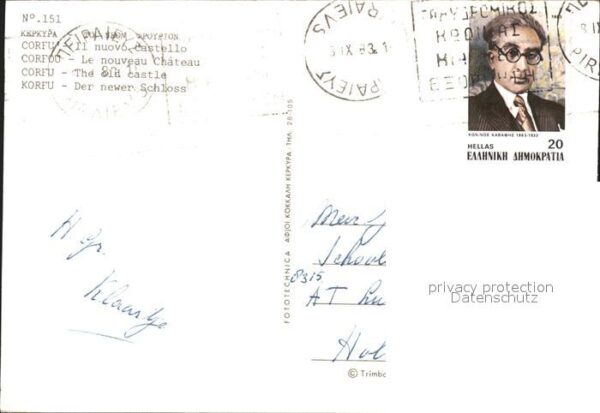 Nº.151
ΚΕΡΚΥΡΑ
CORFU - Il nuovo castello
CORFOU - Le nouveau Château
CORFU - The old castle
KORFU - Der newer Schloss
ΠΕΙΡΑΙΕΥΣ
IX 83.1
ΤΑΧΥΔΡΟΜΙΚΟΣ
ΚΩΔΙΚΑΣ
ΚΩΝ/ΝΟΣ ΚΑΒΑΦΗΣ 1863-1933
HELLAS 20
ΕΛΛΗΝΙΚΗ ΔΗΜΟΚΡΑΤΙΑ
FOTOTECHNICA ΑΦΙΟΙ ΚΟΚΚΑΛΗ ΚΕΡΚΥΡΑ ΤΗΛ. 28-105
H Gr.
Klaartje
School
8315
AT Lu
Hol
© Trimbo
privacy protection
Datenschutz